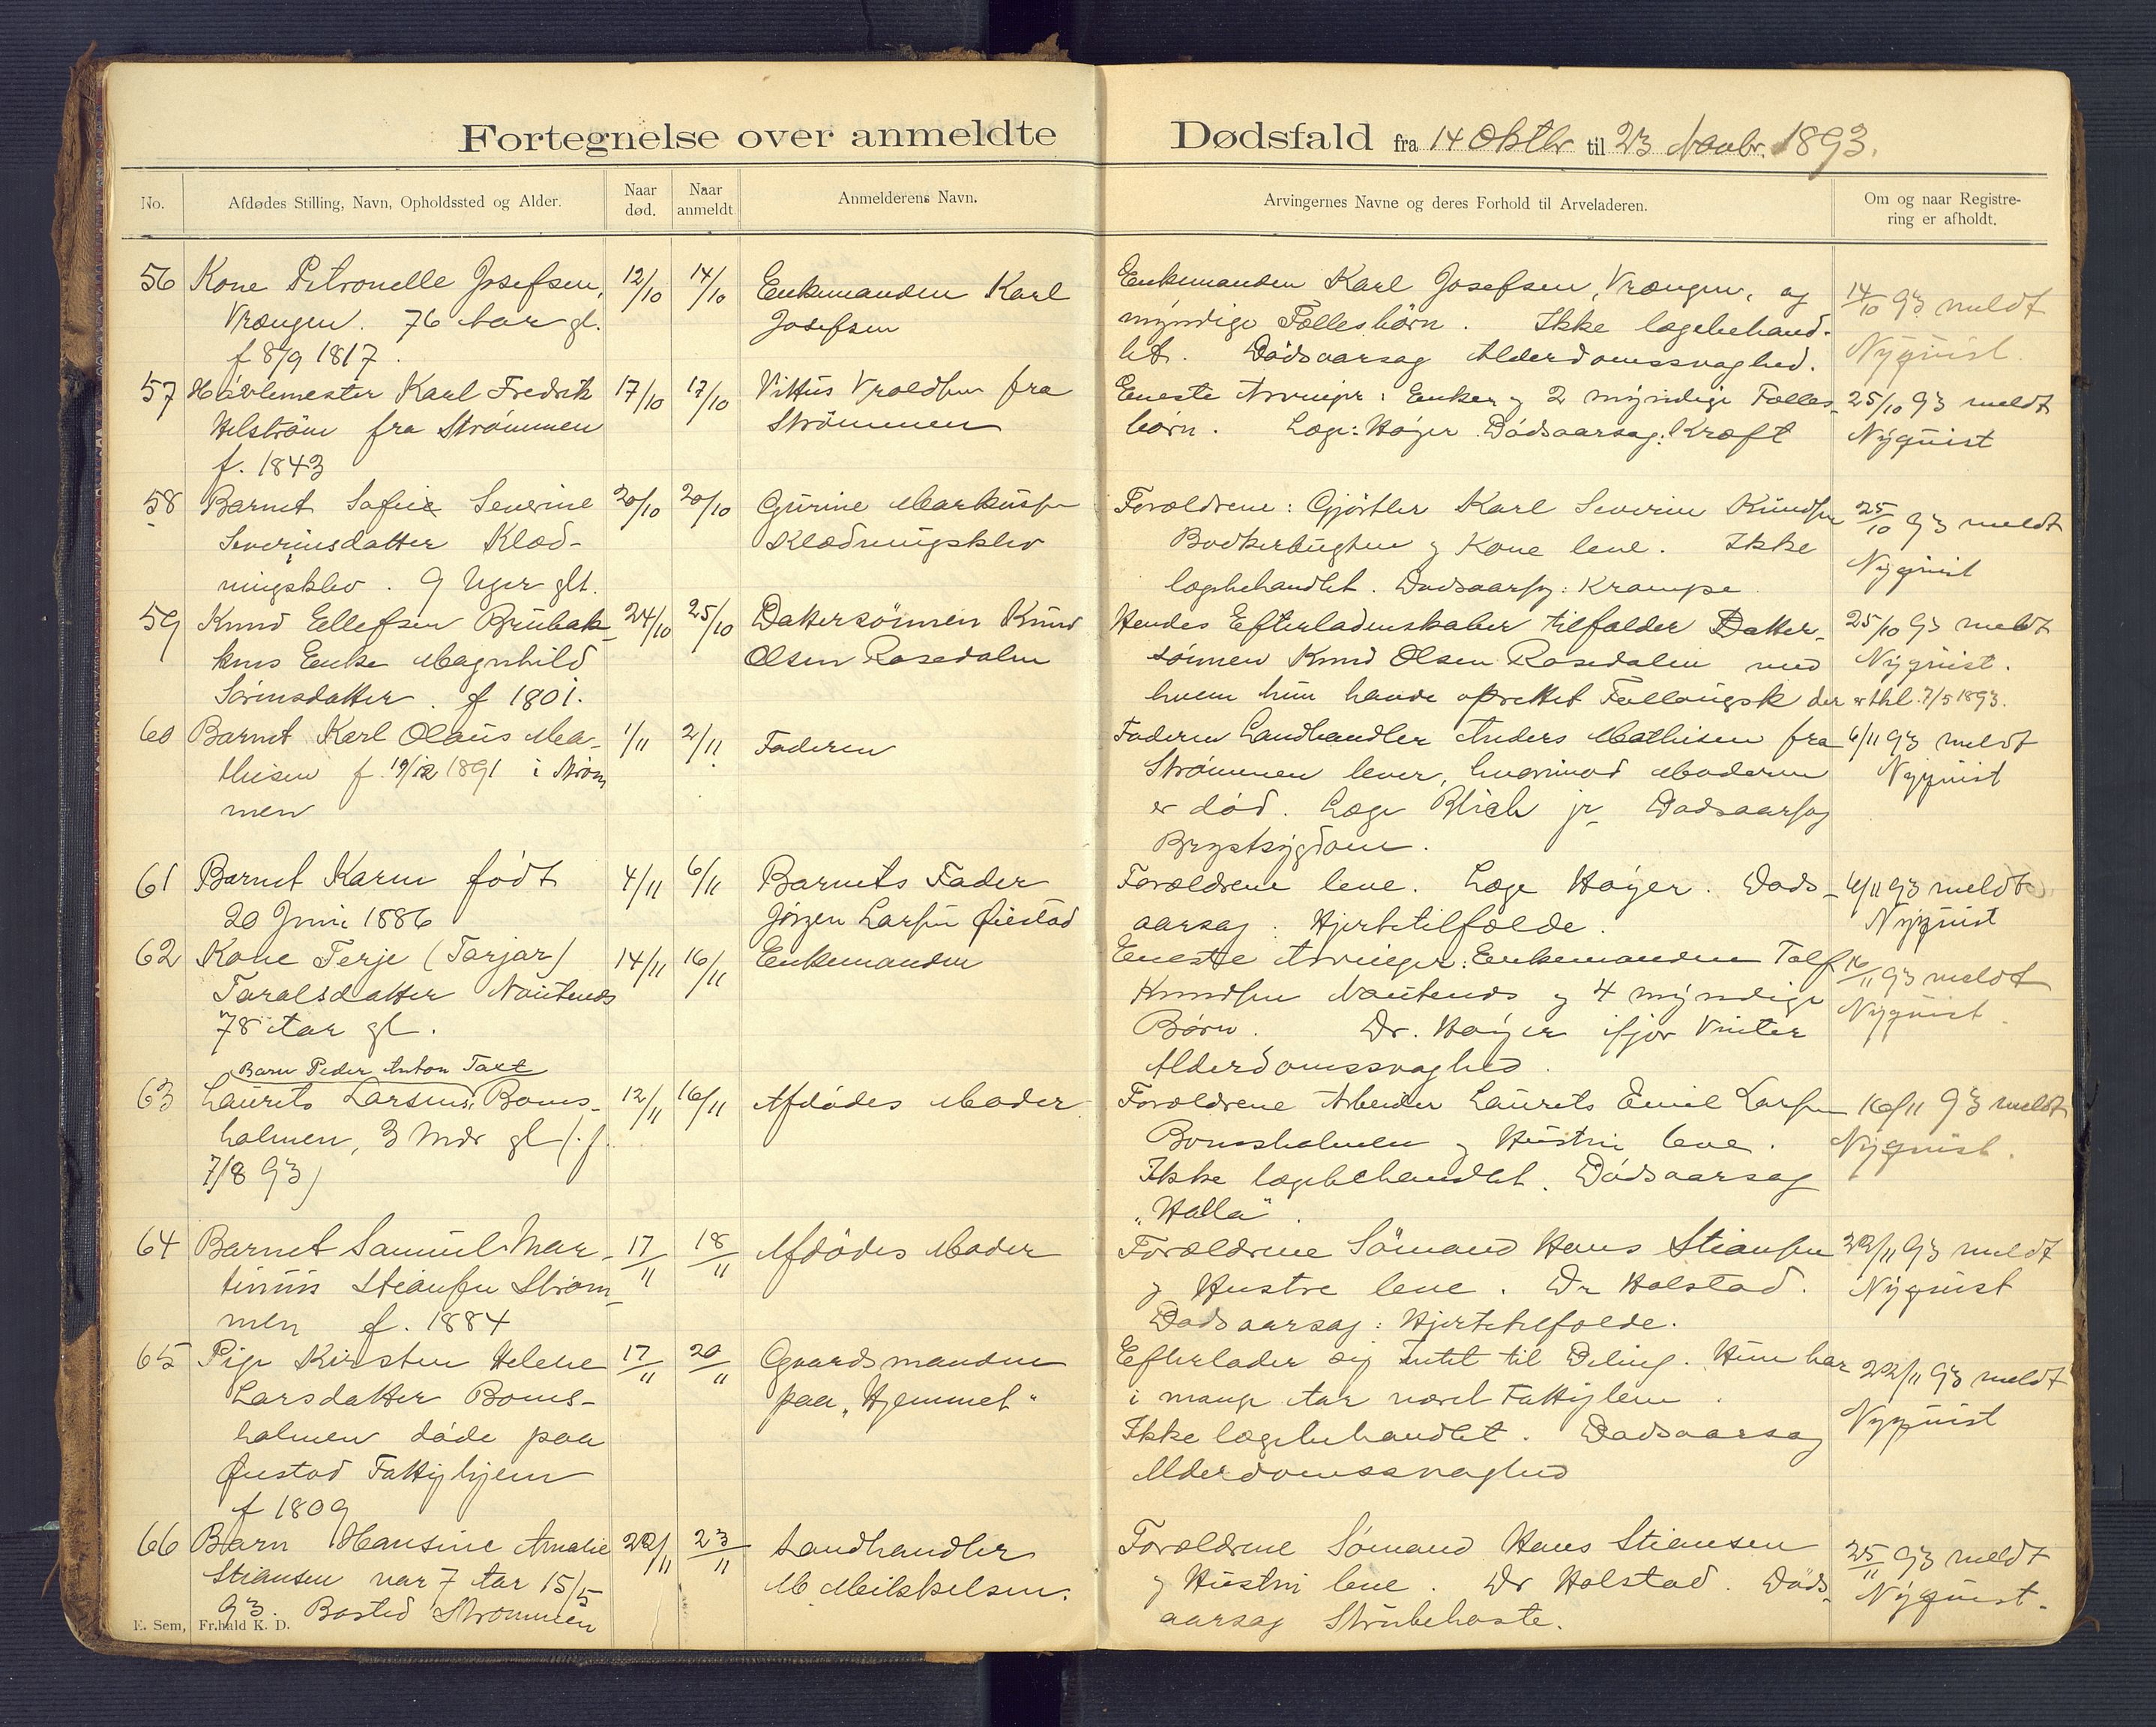 Fortegnelse over anmeldte Dødsfald fra 14 Oktbr til 23 Novbr. 1893.
No. Afdødes Stilling, Navn, Opholdssted og Alder. Naar død. Naar anmeldt Anmelderens Navn. Arvingernes Navne og deres Forhold til Arveladeren. Om og naar Registrering er afholdt.
56 Kone Petronelle Josefsen, 12/10 14/10 Enkemanden Karl
Vrængen. 76 Aar gl. Josefsen
f 8/9 1817.
Enkemanden Karl Josefsen, Vrængen, og
myndige Fællesbørn. Ikke lægebehand-
let. Dødsaarsag Alderdomssvaghed.
14/10 93 meldt
Nyquist.
57 Høvlemester Karl Fredrik 17/10 17/10 Vittus Vroldsen fra
Helstrøm fra Strømmen Strømmen
f. 1843
Eneste Arvinger: Enken og 2 myndige Fælles-
børn. Læge: Høyer. Dødsaarsag: Kræft
25/10 93 meldt
Nyquist
58 Barnet Sofie Severine 20/10 20/10 Gurine Markussen
Severinsdatter Klød- Klødningsklev
ningsklev. 9 Uger glt.
Forældrene: Gjørtler Karl Severin Knudsen
Bødkerbugten og Kone leve. Ikke
lægebehandlet. Dødsaarsag: Krampe.
25/10 93 meldt
Nyquist
59 Knud Ellefsen Brubak- 24/10 25/10 Dattersønnen Knud
kens Enke Magnhild Olsen Rosedalen
Sørensdatter. f 1801.
Hendes Efterladenskaber tilfalder Datter-
sønnen Knud Olsen Rosedalen med
hvem hun havde oprettet Follougsk der er thl. 7/5 1893.
25/10 93 meldt
Nyquist.
60 Barnet Karl Olaus Ma- 1/11 2/11 Faderen
thisen f. 19/12 1891 i Strøm
men
Faderen Landhandler Anders Mathisen fra
Strømmen lever, hvorimod Moderen
er død. Læge Blich jr. Dødsaarsag
Brystsygdom.
6/11 93 meldt
Nyquist
61 Barnet Karen født 4/11 6/11 Barnets Fader
20 Juni 1886 Jørgen Larsen Øiestad
Forældrene leve. Læge Høyer. Døds-
aarsag: Hjertetilfælde.
6/11 93 meldt
Nyquist
62 Kone Terje (Tarjar) 14/11 16/11 Enkemanden
Taralsdatter Nøutenes
78 Aar gl.
Eneste Arvinger: Enkemanden Tolf
Knudsen Nøutenes og 4 myndige
Børn. Dr. Høyer ifjor Vinter
Alderdomssvaghed.
16/11 93 meldt
Nyquist.
Barn Peder Anton Taxt
63 Laurits Larsens, Boms- 12/11 16/11 Afdødes Moder
holmen, 3 Mdr gl (f.
7/8 93)
Forældrene Arbeider Laurits Emil Larsen
Bomsholmen og Hustru leve.
Ikke lægebehandlet. Dødsaarsag
"Halla".
16/11 93 meldt
Nyquist.
64 Barnet Samuel Mar- 17/11 18/11 Afdødes Moder
tinius Stiansen Strøm-
men f. 1884
Forældrene Sømand Hans Stiansen
og Hustru leve. Dr Holstad.
Dødsaarsag: Hjertetilfælde.
22/11 93 meldt
Nyquist
65 Pige Kirsten Helene 17/11 20/11 Gaardsmanden
Larsdatter Boms- paa "Hjemmet"
holmen døde paa
Øiestad Fattighjem
f 1809
Efterlader sig Intet til Deling. Hun har
i mange Aar været Fattiglem.
Ikke lægebehandlet. Dødsaarsag
Alderdomssvaghed
22/11 93 meldt
Nyquist
66 Barn Hansine Amalie 22/11 23/11 Landhandler
Stiansen var 7 Aar 15/5 M Mikkelsen.
93. Bosted Strømmen
Forældrene Sømand Hans Stiansen
og Hustru leve. Dr Holstad. Døds-
aarsag Strubehoste.
25/11 93 meldt
Nyquist.
E. Sem, Fr.hald K. D.